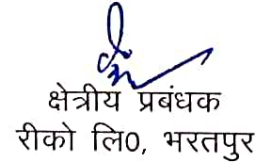 क्षेत्रीय प्रबंधक
रीको लि0, भरतपुर